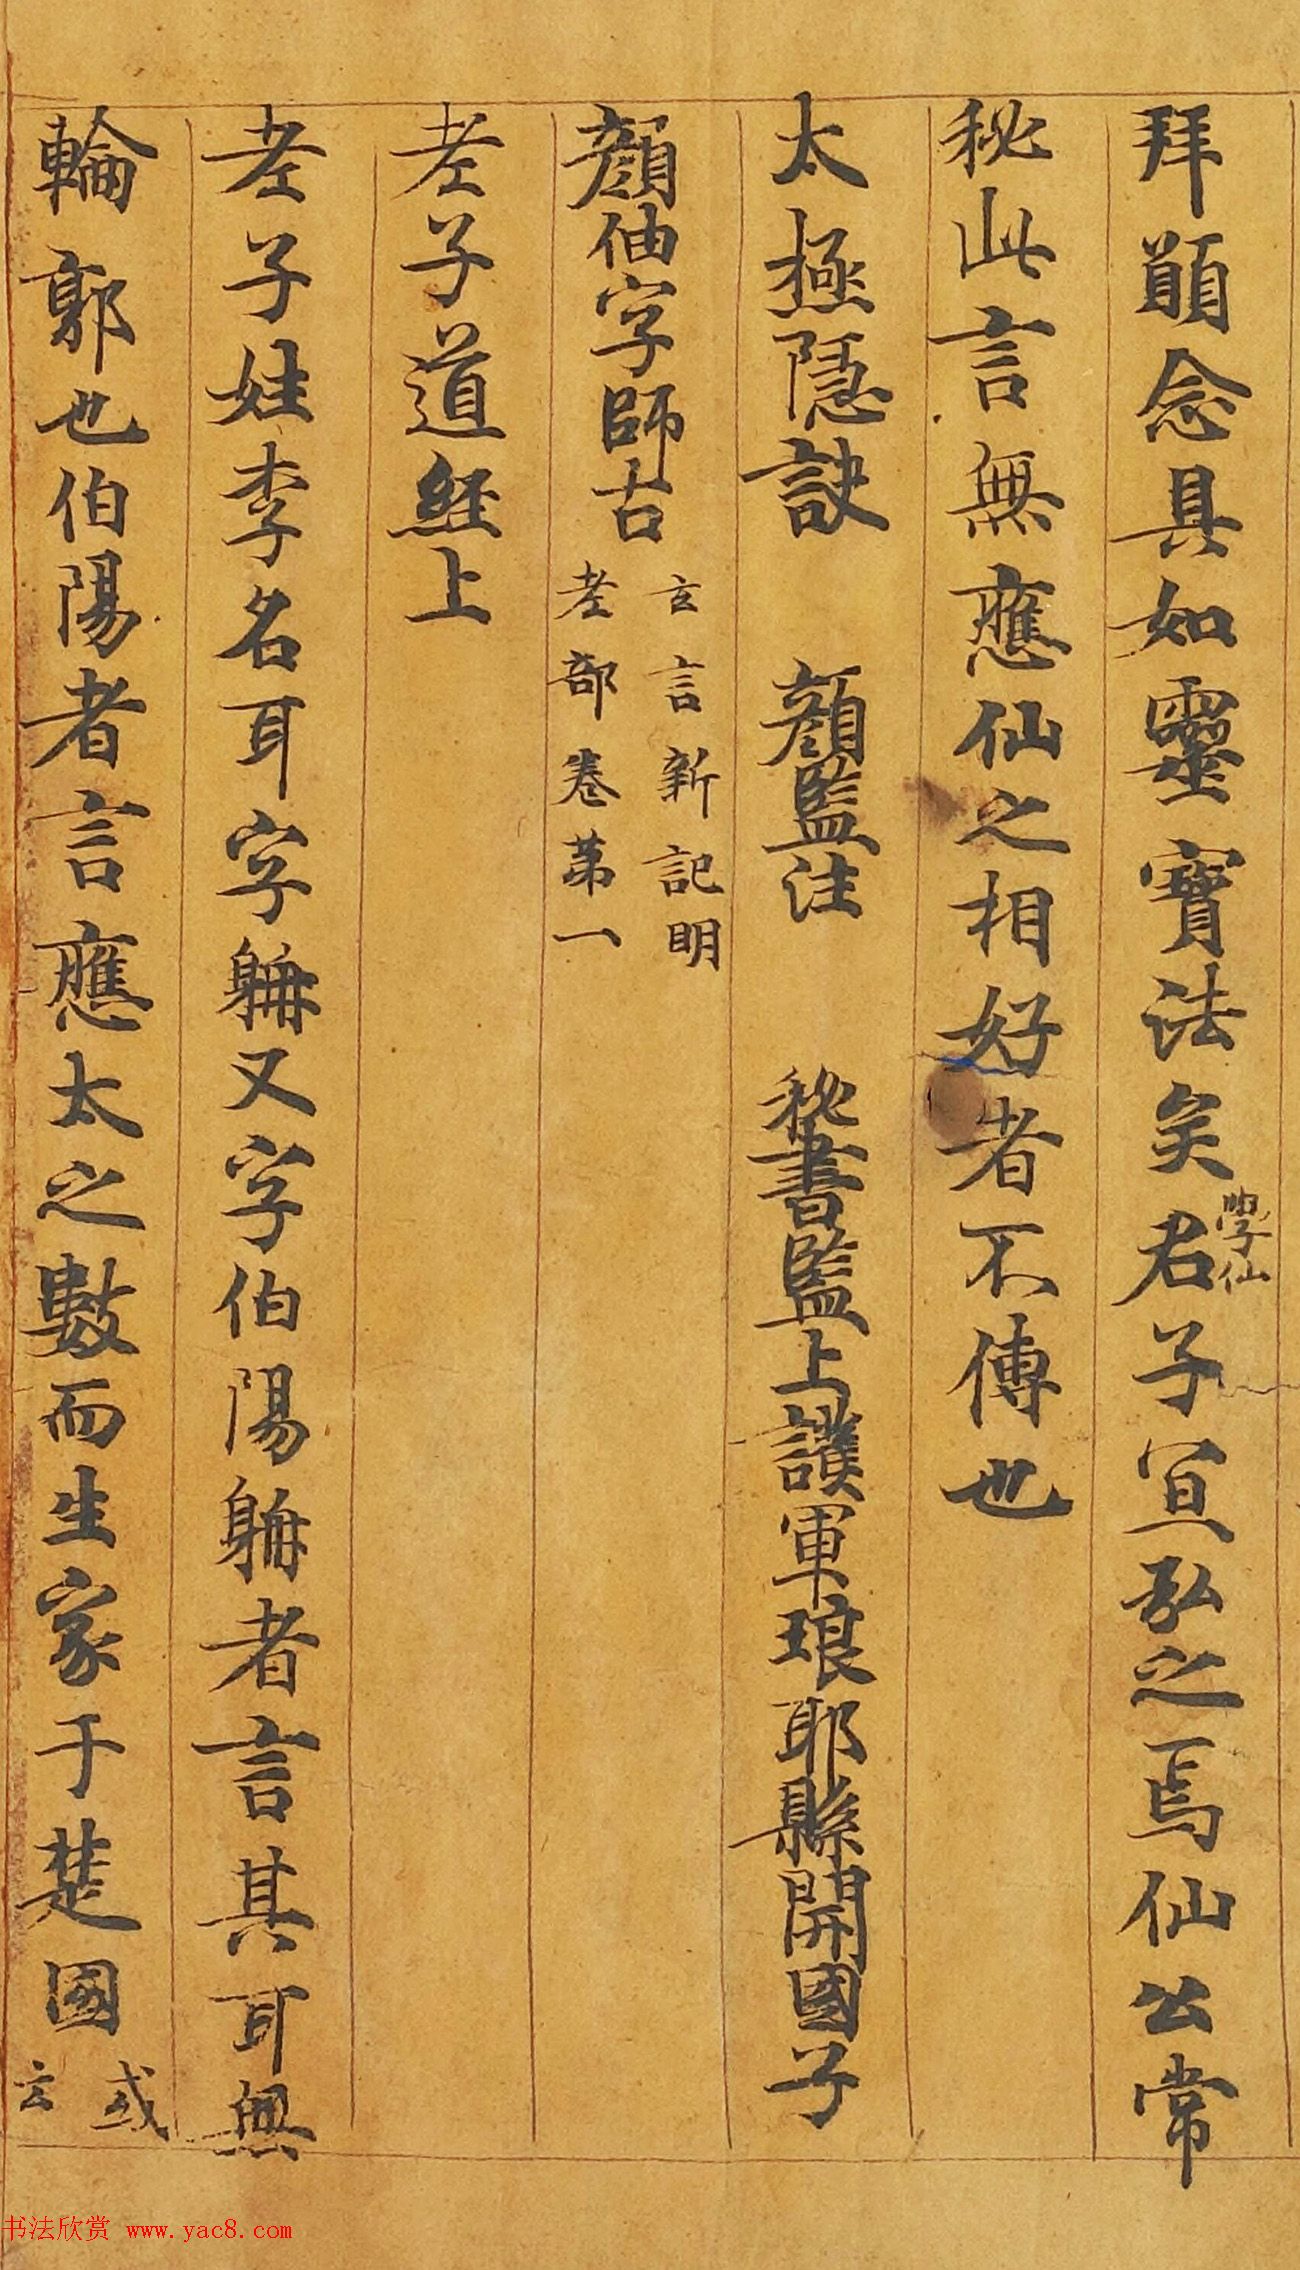 拜願念具如靈寶法矣君子宜弘之焉仙公常
學仙
秘此言無應仙之相好者不傳也
太極隱訣 顏監注 秘書監上護軍琅耶縣開國子
顏伷字師古 玄言新記明
老部卷第一
老子道經上
老子姓李名耳字聃又字伯陽聃者言其耳無
輪郭也伯陽者言應太之數而生家于楚國或
云
书法欣赏 www.yac8.com